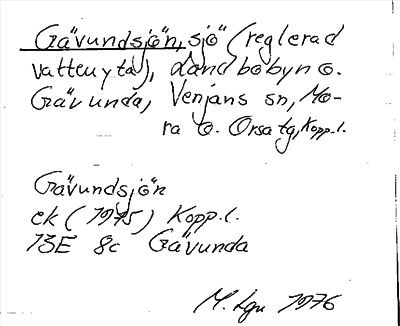 Gävundsjön, sjö (reglerad
vattenyta), Landbobyn o.
Gävunda, Venjans sn, Mo-
ra o. Orsa tg, Kopp.l.
Gävundsjön
ek (1975) Kopp.l.
13E 8c Gävunda
M. Lgn 1976